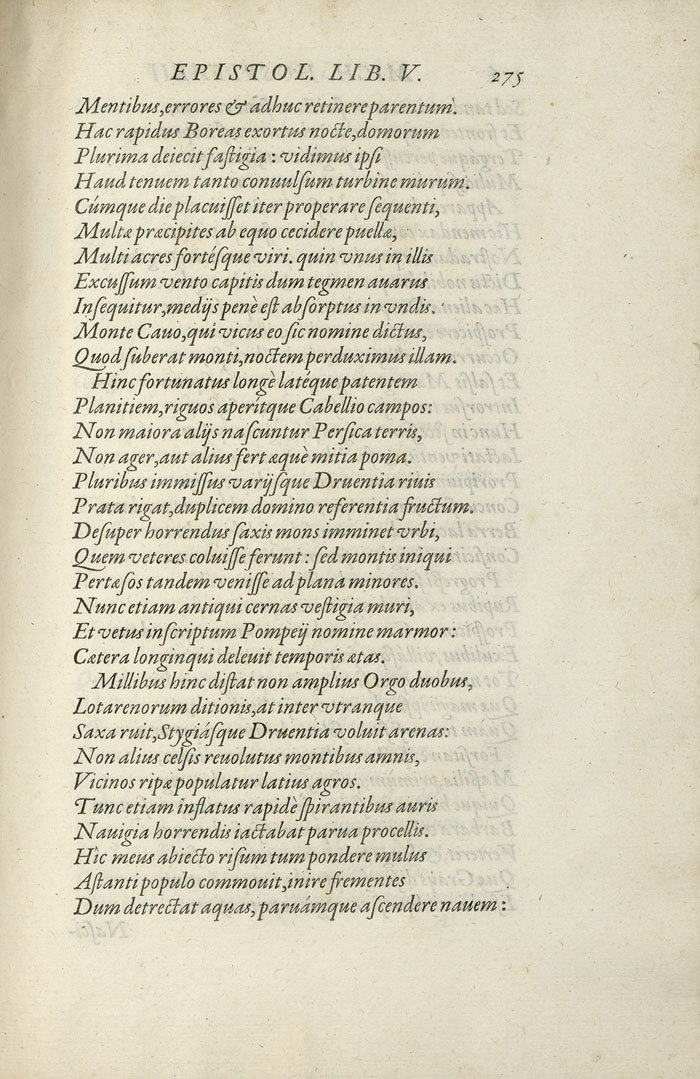 EPISTOL. LIB. V. 275
Mentibus, errores & adhuc retinere parentum.
Hac rapidus Boreas exortus nocte, domorum
Plurima deiecit fastigia: vidimus ipsi
Haud tenuem tanto conuulsum turbine murum.
Cúmque die placuisset iter properare sequenti,
Multæ præcipites ab equo cecidere puellæ,
Multi acres fortésque viri. quin vnus in illis
Excussum vento capitis dum tegmen auarus
Insequitur, medijs penè est absorptus in vndis.
Monte Cauo, qui vicus eo sic nomine dictus,
Quod suberat monti, noctem perduximus illam.
Hinc fortunatus longè latéque patentem
Planitiem, riguos aperítque Cabellio campos:
Non maiora alijs nascuntur Persica terris,
Non ager, aut alius fert æquè mitia poma.
Pluribus immissus varijsque Druentia riuis
Prata rigat, duplicem domino referentia fructum.
Desuper horrendus saxis mons imminet vrbi,
Quem veteres coluisse ferunt: sed montis iniqui
Pertæsos tandem venisse ad plana minores.
Nunc etiam antiqui cernas vestigia muri,
Et vetus inscriptum Pompeij nomine marmor:
Cætera longinqui deleuit temporis ætas.
Millibus hinc distat non amplius Orgo duobus,
Lotarenorum ditionis, at inter vtranque
Saxa ruit, Stygiásque Druentia voluit arenas:
Non alius celsis reuolutus montibus amnis,
Vicinos ripæ populatur latius agros.
Tunc etiam inflatus rapidè spirantibus auris
Nauigia horrendis iactabat parua procellis.
Hîc meus abiecto risum tum pondere mulus
Astanti populo commouit, inire frementes
Dum detrectat aquas, paruámque ascendere nauem: